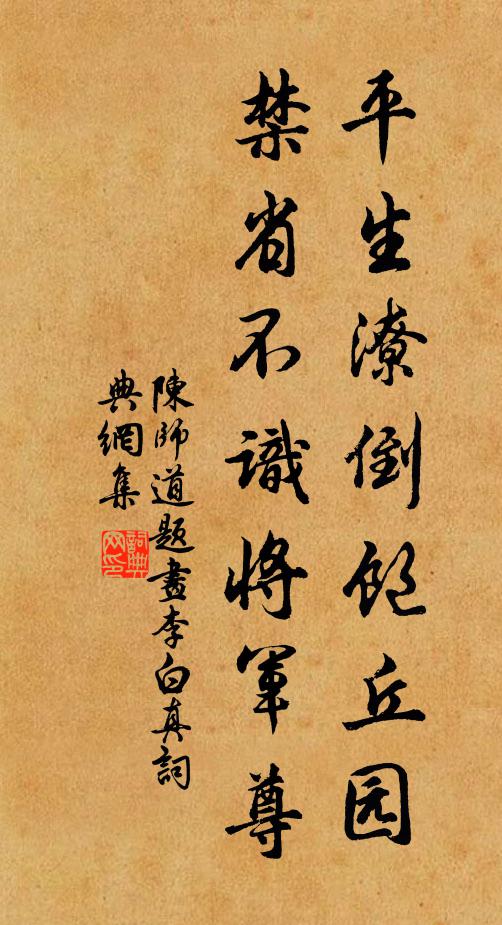 平生潦倒饱丘园
禁省不識將軍尊
陳師道題畫李白真詞
典網集
詞典
网印